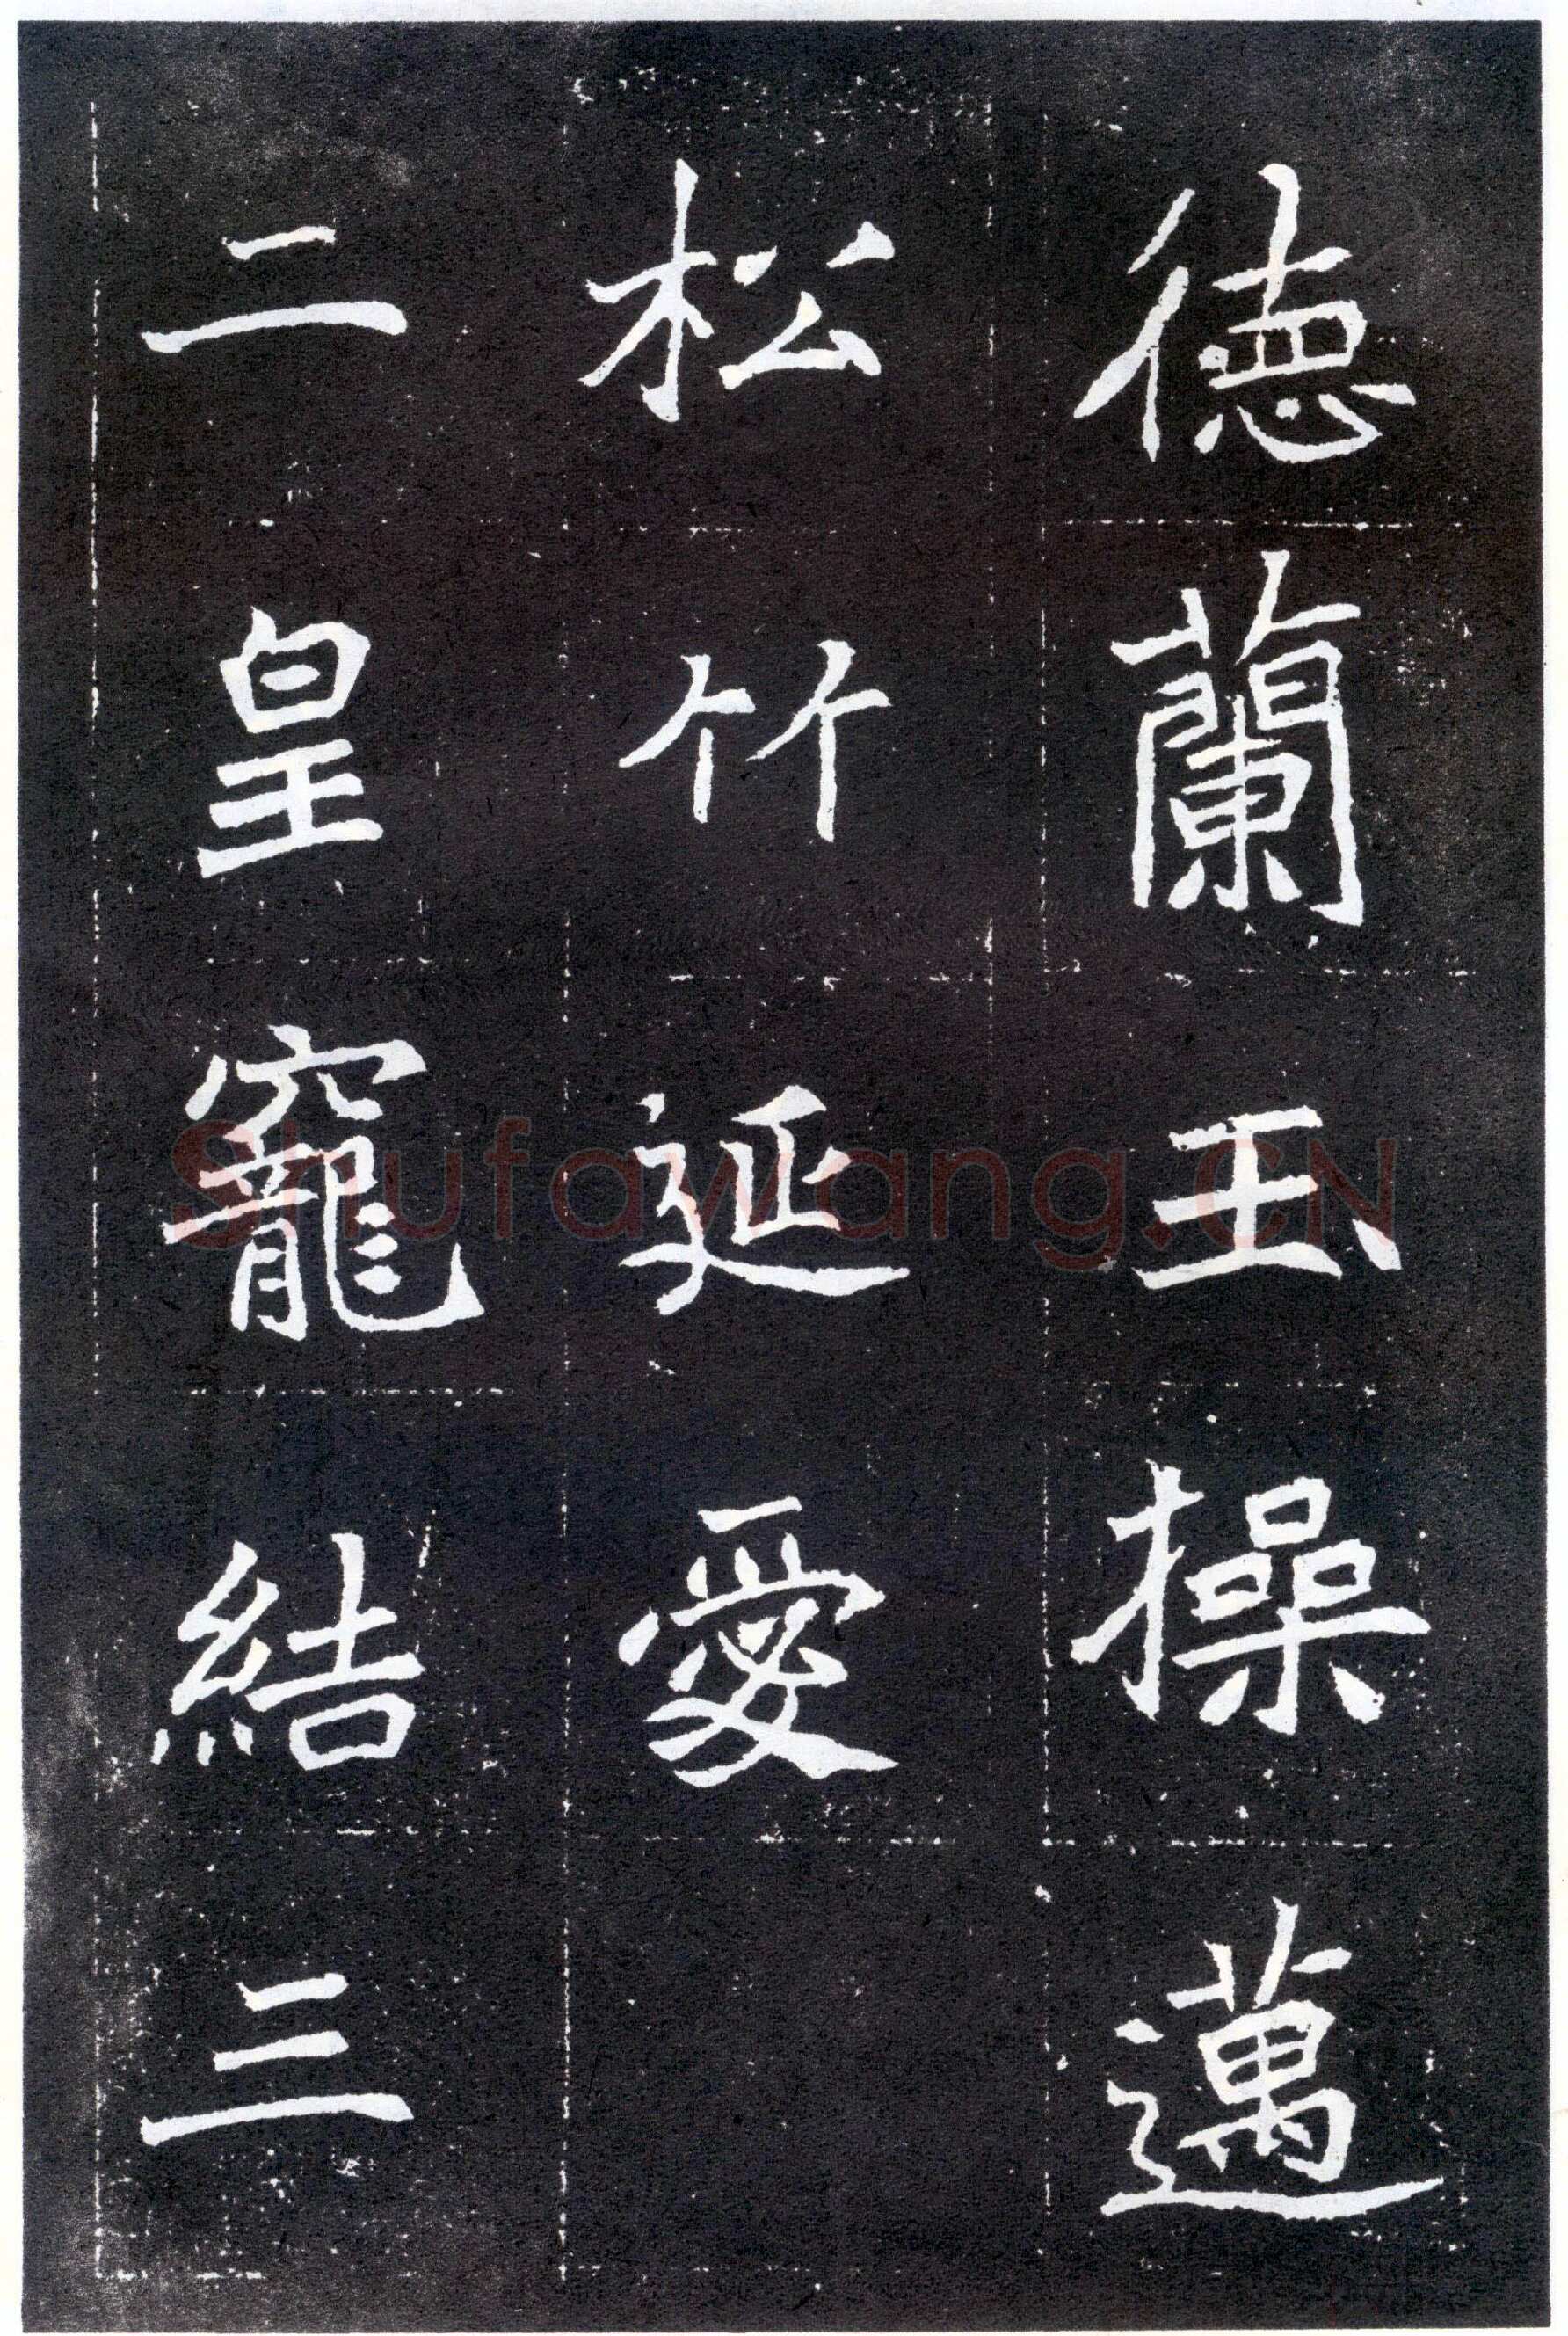 德蘭玉操邁
松竹延愛
二皇寵結三
Shufawang.CN